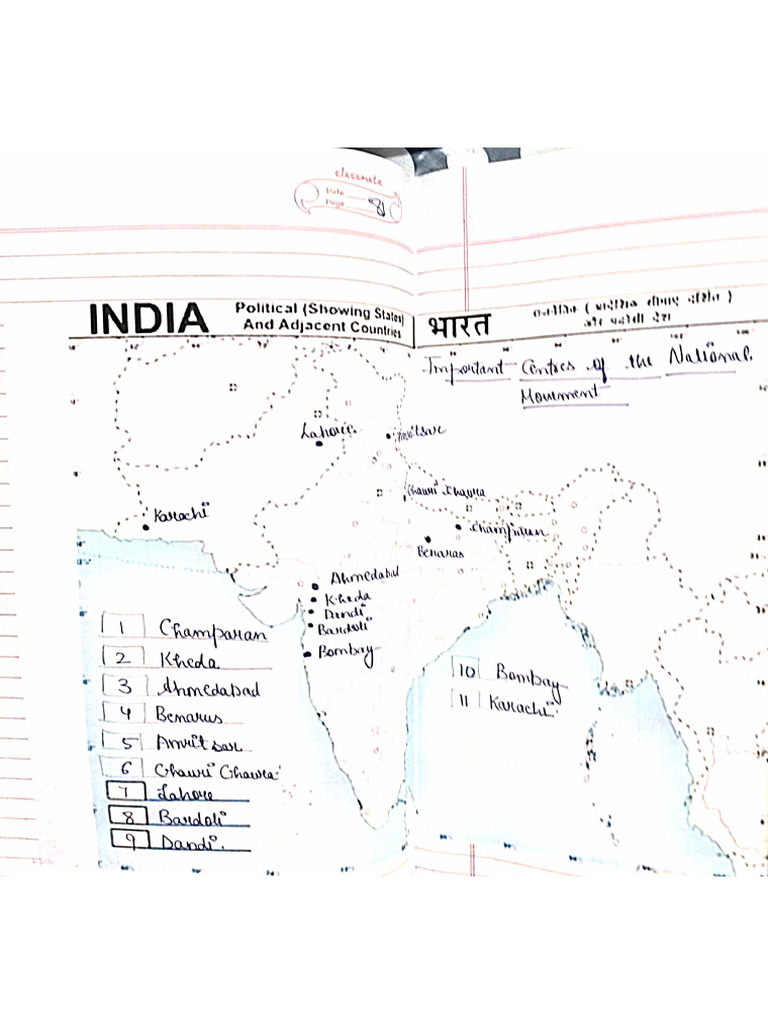 classmate
Date
Page 81
INDIA
Political (Showing States)
And Adjacent Countries
भारत
राजनैतिक ( प्रादेशिक सीमाएं दर्शित )
और पड़ोसी देश
Important Centres of the National
Movement
Lahore
Amritsar
Chauri Chaura
Karachi
Champaran
Benaras
Ahmedabad
Kheda
Dandi
Bardoli
Bombay
1 Champaran
2 Kheda
3 Ahmedabad
4 Benarus
5 Amritsar
6 Chauri Chaura
7 Lahore
8 Bardoli
9 Dandi.
10 Bombay
11 Karachi